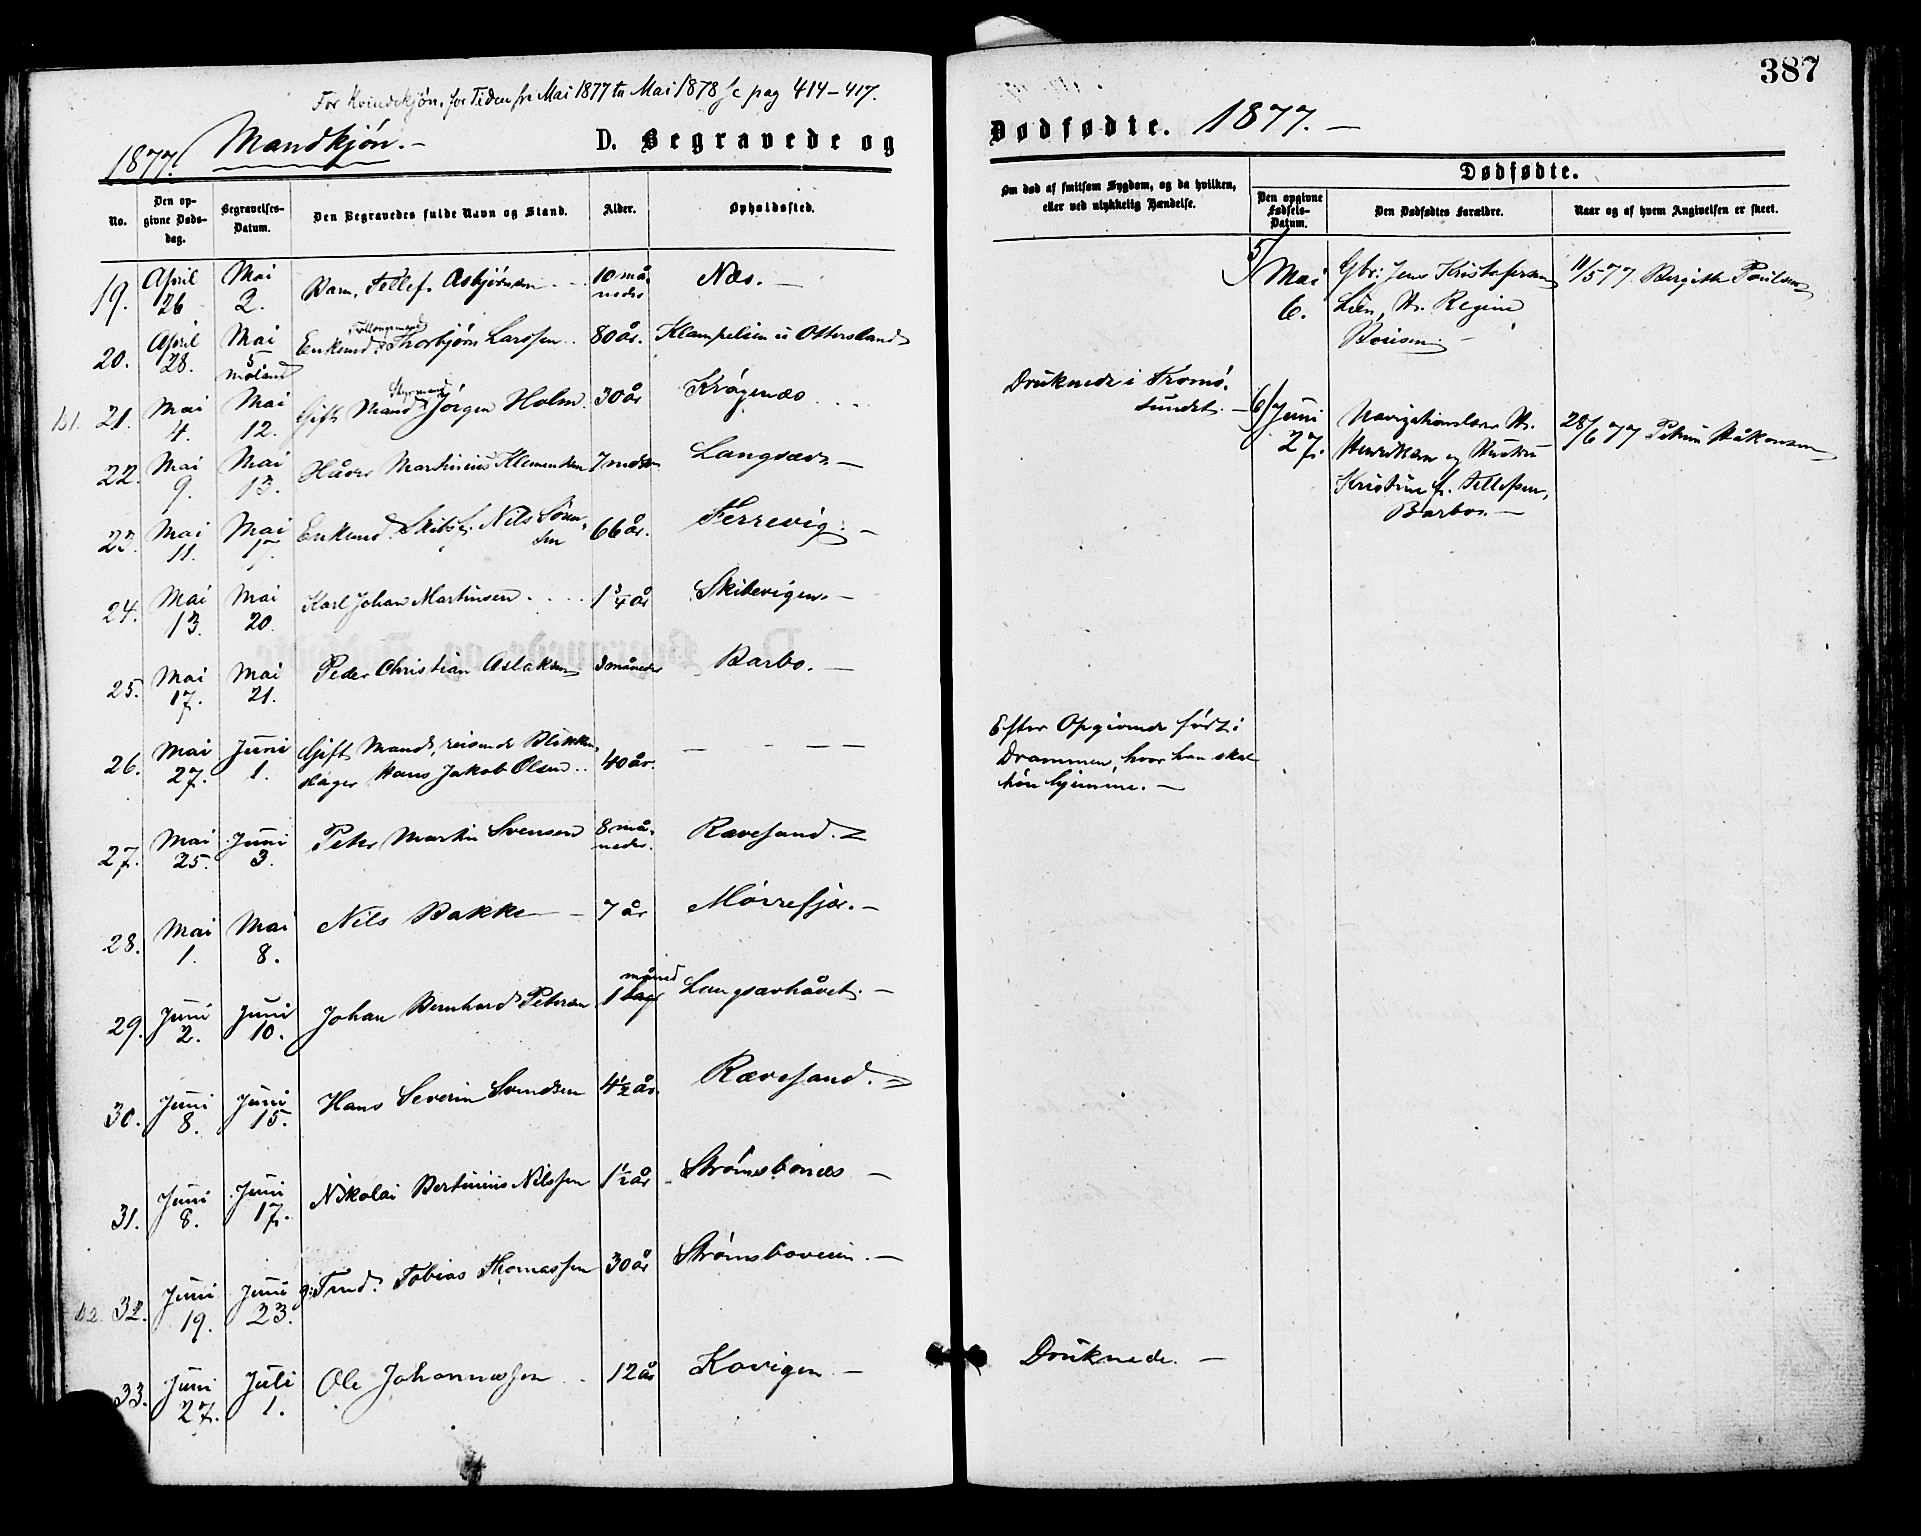 387
For Kvindekjøn, for Tiden fra Mai 1877 til Mai 1878 se pag 414–417.
1877. Mandkjøn.– D. Begravede og Dødfødte. 1877.–
No.
Den opgivne Døds-dag.
Begravelses-Datum.
Den Begravedes fulde Navn og Stand.
Alder.
Opholdssted.
Om død af smitsom Sygdom, og da hvilken, eller ved ulykkelig Hændelse.
Dødfødte.
Den opgivne Fødsels-Datum.
Den Dødfødtes Forældre.
Naar og af hvem Angivelsen er skeet.
19. April 26 Mai 2. Barn, Tellef Asbjørnsen 10 måneder Næs. –
20. April 28. Mai 5 Moland Enkemd. Thorbjørn Larssen 80 år. Klampelien u Ottersland
21. Mai 4. Mai 12. Gift Mand Styrmand Jörgen Holm. 30 år Krögenæs Druknede i Tromö-sundet. –
22. Mai 9. Mai 13. Håver Martinius Klemensen 7 mdr Langsæv –
23. Mai 11. Mai 17. Enkemd. Nils Sören-sen 66 år. Ferrevig. –
24. Mai 13. Mai 20. Karl Johan Martinsen 1 3/4 år Skibevigen –
25. Mai 17. Mai 21. Peder Christian Aslaksen måneder Barbo. –
26. Mai 27. Juni 1. Gift Mand, reisende Blikken-slager Hans Jakob Olsen 40 år. – – – – Efter Opgivende født i
Drammen, hvor han skal
høre hjemme. –
27. Mai 25. Juni 3. Peter Martin Svensen 8 måneder. Rævesand.
28. Mai 1. Mai 8. Nils Bakke – 7 år Mörrefjær. –
29. Juni 2. Juni 10. Johan Bernhard Petersen 1 måned Langsævhåvet. –
30. Juni 8. Juni 15. Hans Severin Svendsen 4 1/2 år. Rævesand. –
31. Juni 8. Juni 17. Nikolai Bertinius Nilssen 1 1/2 år Strömsbonæs –
32. Juni 19. Juni 23. Tobias Thomassen 30 år Strömsboveien. –
33. Juni 27. Juli 1. Ole Johannessen 12 år Kovigen – Druknede. –
5/ Mai 6. Gbr: Jens Kristofersen
Lien, Hr. Regine
11/5 77 Bergith Poulsen
6/ Juni 27. Navigationslærer H.
Henriksen og Hustru
Kristine f. Tellefsen,
Barbo. –
28/6 77 Håkonsen